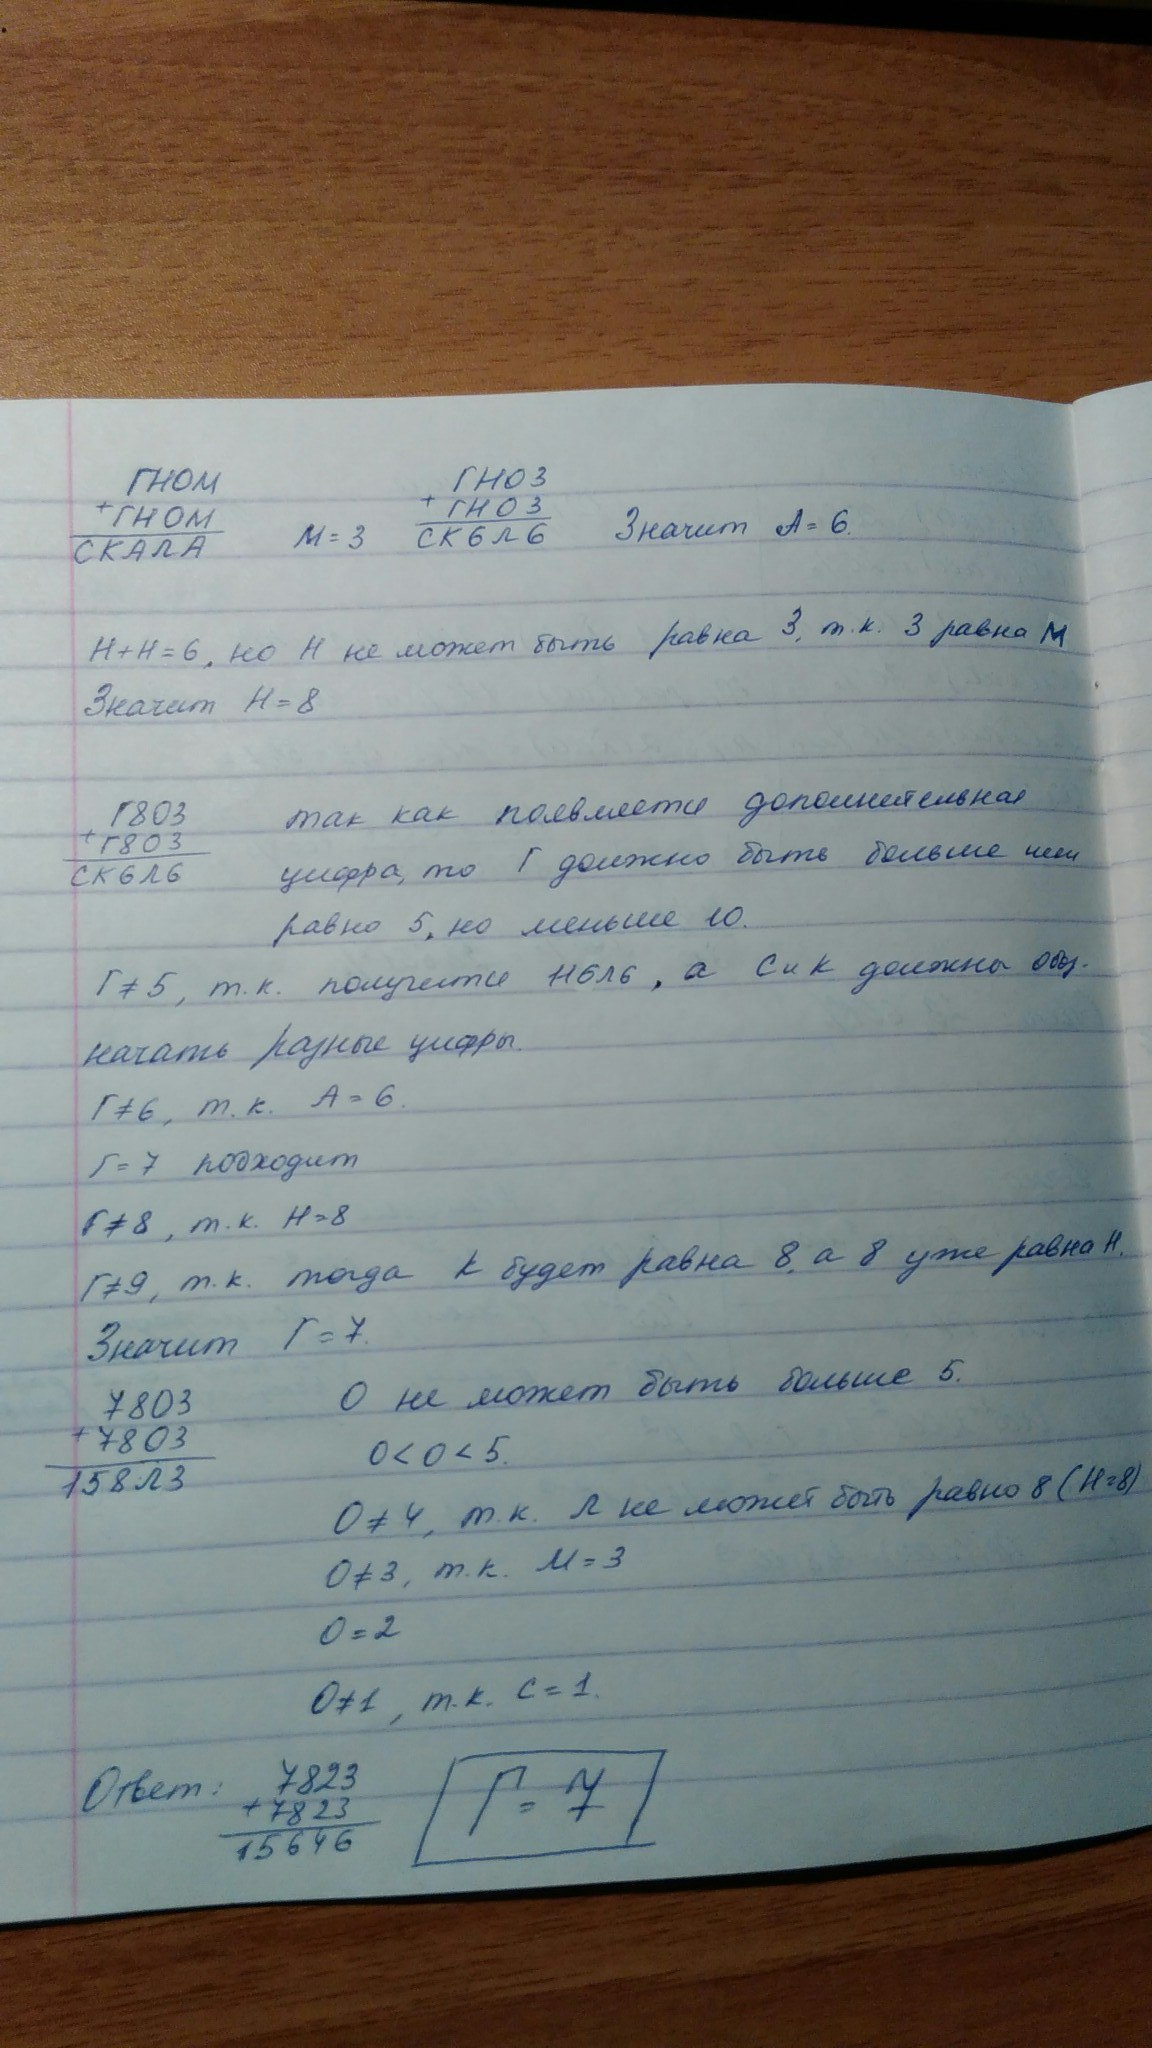 ГНОМ
+ ГНОМ
СКАЛА
М = 3
ГНО3
+ ГНО3
СК6Л6
Значит А = 6.
Н+Н=6, но Н не может быть равна 3, т.к. 3 равна М
Значит Н = 8
Г8О3
+ Г8О3
СК6Л6
так как появляется дополнительная
цифра, то Г должно быть больше или
равно 5, но меньше 10.
Г≠5, т.к. получится 116Л6, а С и К должны обоз-
начать разные цифры.
Г≠6, т.к. А = 6.
Г=7 подходит
Г≠8, т.к. Н=8
Г≠9, т.к. тогда К будет равна 8, а 8 уже равна Н.
Значит Г = 7.
78О3
+ 78О3
158Л3
О не может быть больше 5.
0 < О < 5.
О ≠ 4, т.к. Л не может быть равно 8 (Н=8)
О≠3, т.к. М = 3
О = 2
О≠1, т.к. С = 1.
Ответ:
7823
+ 7823
15646
Г = 7